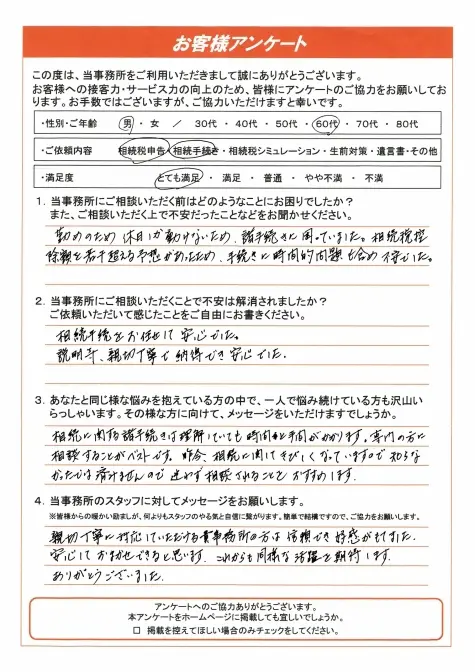 お客様アンケート
この度は、当事務所をご利用いただきまして誠にありがとうございます。
お客様への接客力・サービス力の向上のため、皆様にアンケートのご協力をお願いしてお
ります。お手数ではございますが、ご協力いただけますと幸いです。
・性別・ご年齢 男 ・ 女 / 30代 ・ 40代 ・ 50代 ・ 60代 ・ 70代 ・ 80代
・ご依頼内容 相続税申告・相続手続き・相続税シミュレーション・生前対策・遺言書・その他
・満足度 とても満足 ・ 満足 ・ 普通 ・ やや不満 ・ 不満
1. 当事務所にご相談いただく前はどのようなことにお困りでしたか?
また、ご相談いただく上で不安だったことなどをお聞かせください。
勤めのため休日しか動けないため、諸手続きに困っていました。相続税控
除額を若干超える予想があったため、手続きに時間的問題も含め不安でした。
2. 当事務所にご相談いただくことで不安は解消されましたか?
ご依頼いただいて感じたことをご自由にお書きください。
相続手続をお任せして安心でした。
説明等、親切丁寧で納得でき安心でした。
3. あなたと同じ様な悩みを抱えている方の中で、一人で悩み続けている方も沢山い
らっしゃいます。その様な方に向けて、メッセージをいただけますでしょうか。
相続に関する諸手続きは理解していても時間と手間がかかります。専門の方に
相談することがベストです。昨今、相続に関してきびしくなっていますので知らな
かったでは済けませんので迷わず相談されることをおすすめします。
4. 当事務所のスタッフに対してメッセージをお願いします。
※皆様からの暖かい励ましが、何よりもスタッフのやる気と自信に繋がります。簡単で結構ですので、ご協力をお願いします。
親切丁寧に対応していただける貴事務所の方は信頼でき好感がもてました。
安心しておまかせできると思います。これからも同様な活躍を期待します。
ありがとうございました。
アンケートへのご協力ありがとうございます。
本アンケートをホームページに掲載しても宜しいでしょうか。
□ 掲載を控えてほしい場合のみチェックをしてください。